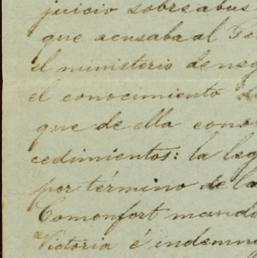 juicio sobre abus
que acusaba al Ge
el ministerio de neg
el conocimiento d
que de ella cono
cedimientos: la leg
por término de la
Comonfort mando
Victoria é indemn